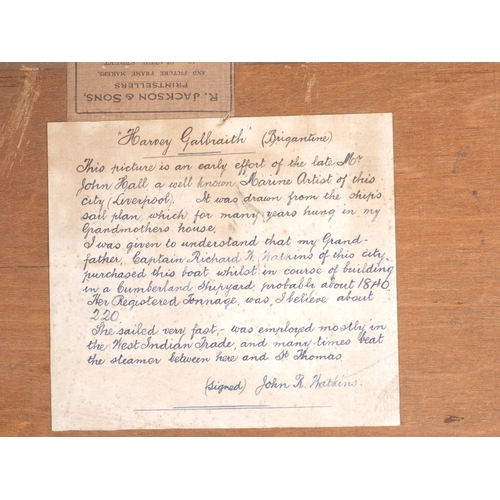 R. JACKSON & SONS,
PRINTSELLERS
AND PICTURE FRAME MAKERS,
"Harvey Galbraith" (Brigantine)
This picture is an early effort of the late Mr
John Hall a well known Marine Artist of this
city (Liverpool). It was drawn from the ship's
sail plan which for many years hung in my
Grandmothers house.
I was given to understand that my Grand-
father, Captain Richard W. Watkins of this city,
purchased this boat whilst in course of building
in a Cumberland Shipyard, probably about 1840.
Her Registered Tonnage, was, I believe about
220.
She sailed very fast, - was employed mostly in
the West Indian Trade, and many times beat
the steamer between here and St Thomas
(signed) John R. Watkins.